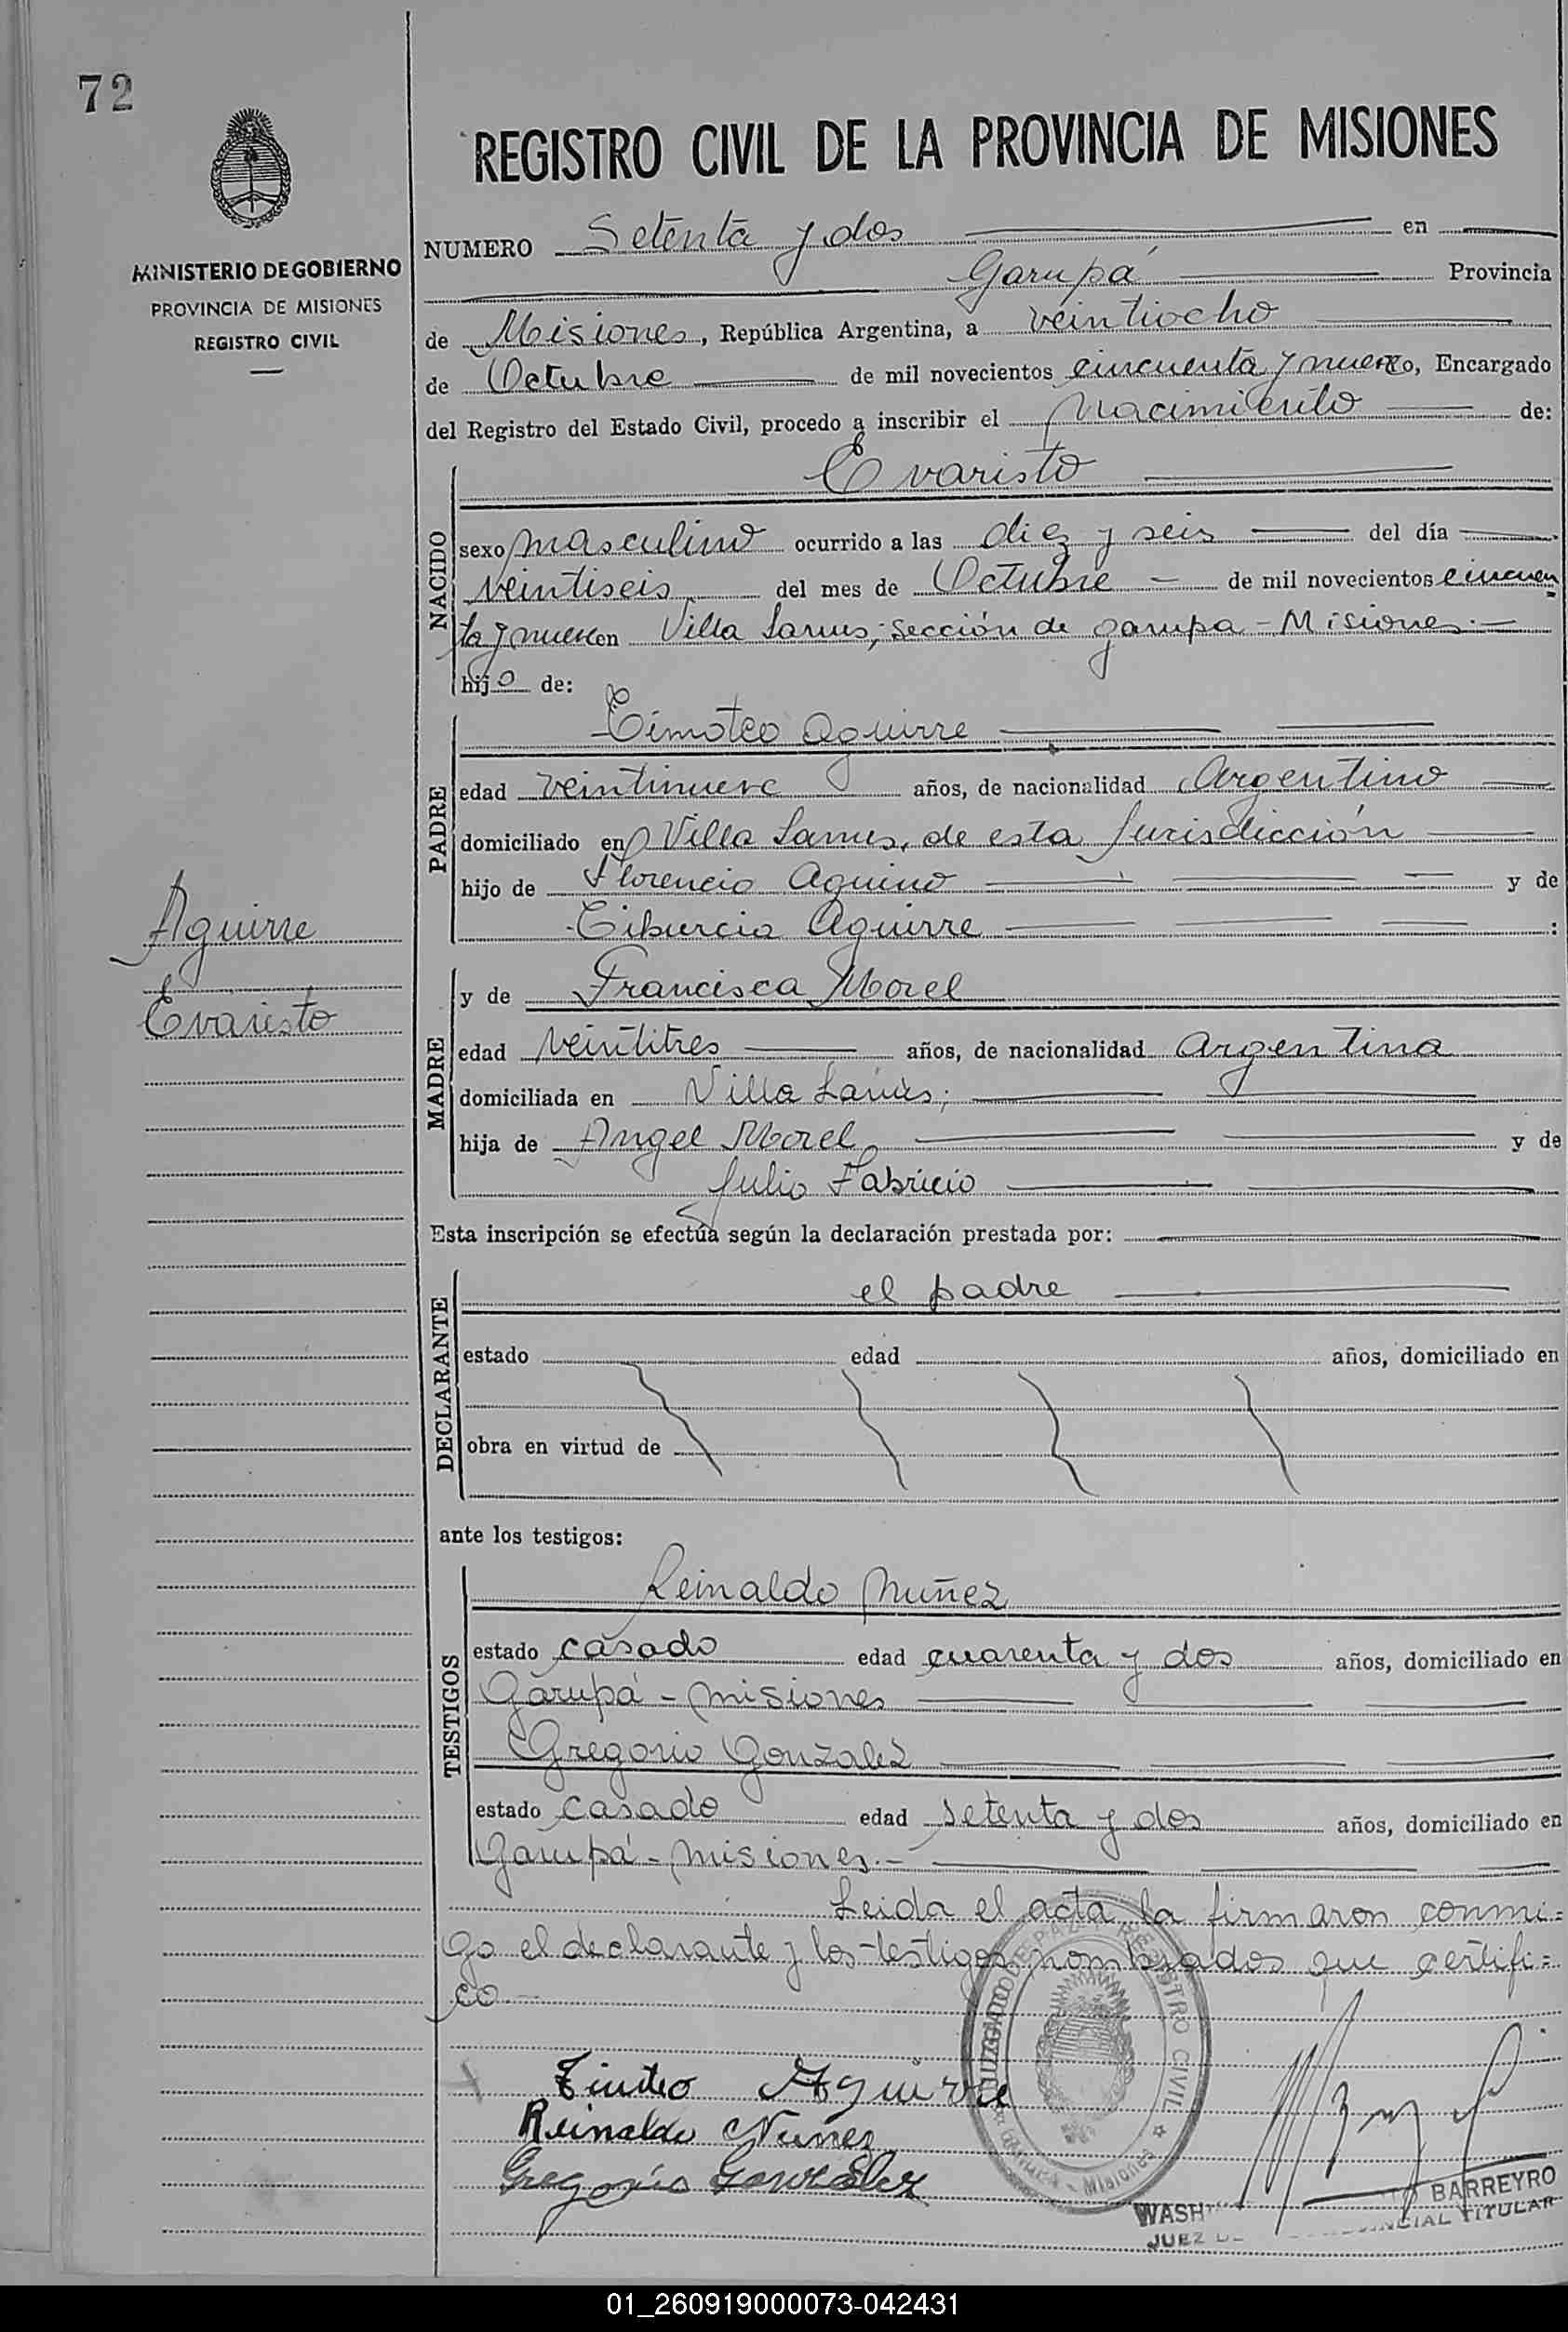 72
REGISTRO CIVIL DE LA PROVINCIA DE MISIONES
MINISTERIO DE GOBIERNO
PROVINCIA DE MISIONES
REGISTRO CIVIL
NUMERO Setenta y dos en
Garupá Provincia
de Misiones, República Argentina, a veintiocho
de Octubre de mil novecientos cincuenta y nueve, Encargado
del Registro del Estado Civil, procedo a inscribir el nacimiento de:
NACIDO
Evaristo
sexo masculino ocurrido a las diez y seis del día
veintiseis del mes de Octubre de mil novecientos cincuen
ta y nueve en Villa Lanus; sección de garupa - Misiones.-
hijo de:
PADRE
Timoteo Aguirre
edad veintinueve años, de nacionalidad Argentino
domiciliado en Villa Lanus, de esta Jurisdicción
hijo de Florencio Aquino y de
Tiburcia Aguirre :
Aguirre
Evaristo
MADRE
y de Francisca Morel
edad veintitres años, de nacionalidad Argentina
domiciliada en Villa Lanús;
hija de Angel Morel y de
Julio Fabricio
Esta inscripción se efectúa según la declaración prestada por:
DECLARANTE
el padre
estado edad años, domiciliado en
obra en virtud de
ante los testigos:
TESTIGOS
Reinaldo Nuñez
estado casado edad cuarenta y dos años, domiciliado en
Garupá - Misiones
Gregorio Gonzalez
estado casado edad setenta y dos años, domiciliado en
Garupá - Misiones.-
Leida el acta la firmaron conmi=
go el declarante y los testigos nombrados que certifi=
co
JUZGADO DE PAZ Y REGISTRO CIVIL
GARUPA - Misiones
Aguirre
Reinaldo Nuñez
Gregorio Gonzalez
BARREYRO
JUEZ TITULAR
01_260919000073-042431